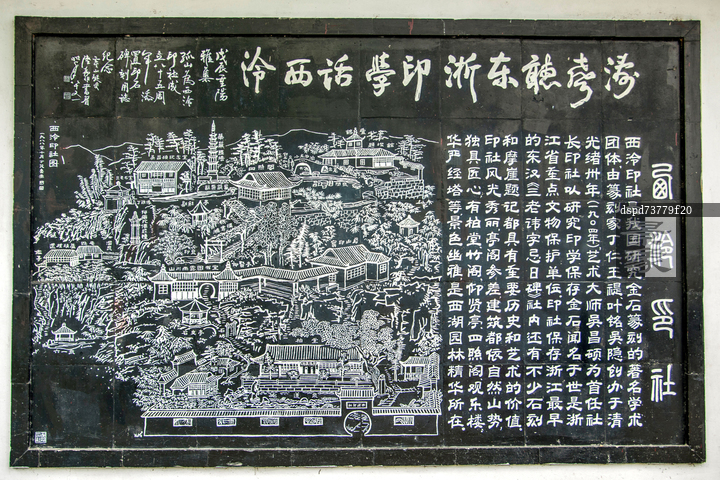 濤聲聽东浙印學话西泠
戊辰重陽
雅集
孤山為西泠
印社成
立八十五周
置印石
碑刻用誌
紀念
西泠印社
西泠印社是我国研究金石篆刻的著名学术
团体由篆刻家丁仁王禔叶铭吴隐创办于清
光绪卅年(一九〇四年)艺术大师吴昌硕为首任社
长印社以研究印学保存金石闻名于世是浙
江省重点文物保护单位印社保存浙江最早
的东汉《三老讳字忌日碑》社内还有不少石刻
和摩崖题记都具有重要历史和艺术的价值
印社风光秀丽亭阁参差建筑都依自然山势
独具匠心有柏堂竹阁仰贤亭四照阁观乐楼
华严经塔等景色幽雅是西湖园林精华所在.
西泠印社图
山川雨露图书室
柏堂
dspd73779f20